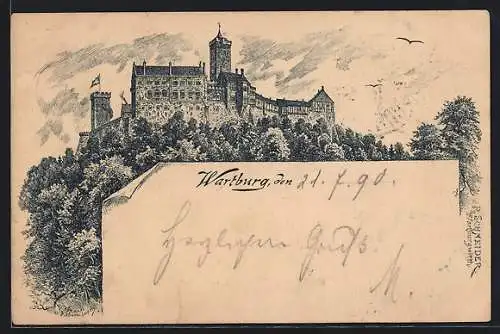 Wartburg, den 21. 7. 90.
Herzlichen Gruß.
M.
P. SCHNEIDER